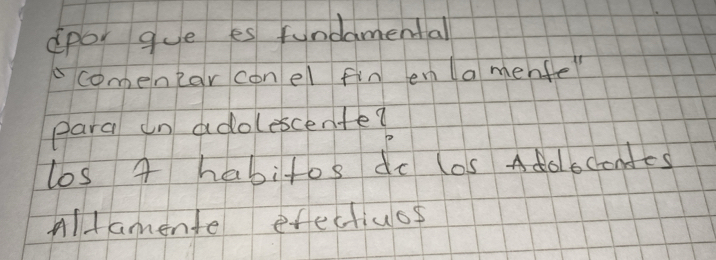 ¿por que es fundamental
"comenzar con el fin en la mente"
para un adolescente?
los 7 habitos de los Adolecentes
Altamente efectivos